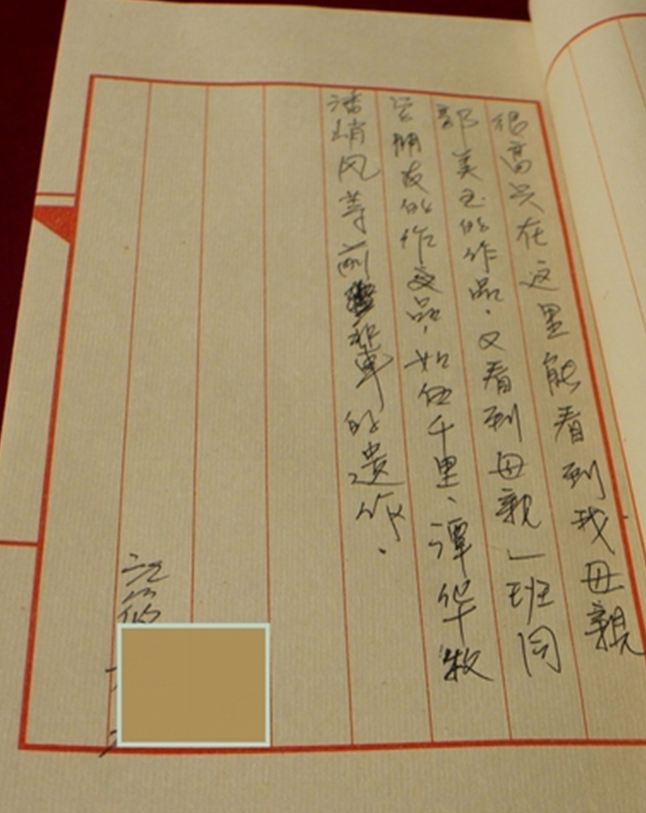 很高兴在这里能看到我母親
郭美玉的作品，又看到母親一班同
学朋友的作品，如伍千里、谭华牧
潘峭风等前輩的遗作．